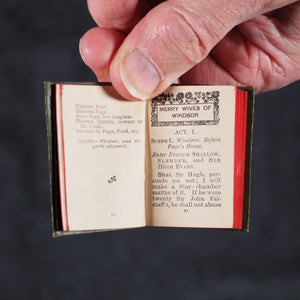 Mistress Ford.
Mistress Page.
Anne Page, her daughter.
Mistress Quickly, servant to
Dr. Caius.
Servants to Page, Ford, etc.
SCENE—Windsor, and the
parts adjacent.
MERRY WIVES OF
WINDSOR
ACT. I.
SCENE I. Windsor, Before
Page's House.
Enter JUSTICE SHALLOW,
SLENDER, and SIR
HUGH EVANS.
Shal. Sir Hugh, per-
suade me not; I will
make a Star-chamber
matter of it. If he were
twenty Sir John Fal-
staff's, he shall not abuse